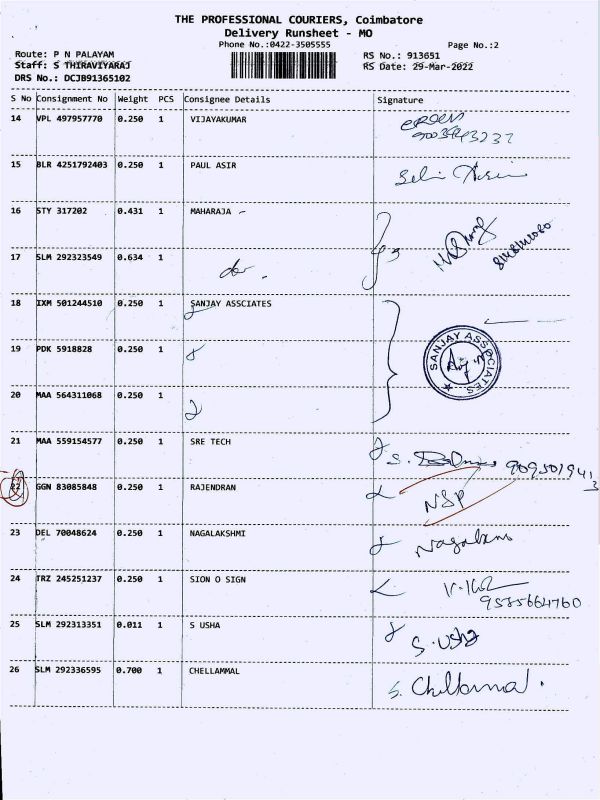 THE PROFESSIONAL COURIERS, Coimbatore
Delivery Runsheet - MO
Phone No.:0422-3505555
Page No.:2
Route: P N PALAYAM
RS No.: 913651
Staff: S THIRAVIYARAJ
RS Date: 29-Mar-2022
DRS No.: DCJB91365102
S No Consignment No Weight PCS Consignee Details Signature
14 VPL 497957770 0.250 1 VIJAYAKUMAR
15 BLR 4251792403 0.250 1 PAUL ASIR
16 STY 317202 0.431 1 MAHARAJA
17 SLM 292323549 0.634 1
18 IXM 501244510 0.250 1 SANJAY ASSCIATES
SANJAY ASSOCIATES
19 PDK 5918828 0.250 1
20 MAA 564311068 0.250 1
21 MAA 559154577 0.250 1 SRE TECH
22 GGN 83085848 0.250 1 RAJENDRAN NSP
23 DEL 70048624 0.250 1 NAGALAKSHMI
24 TRZ 245251237 0.250 1 SION O SIGN
9585664760
25 SLM 292313351 0.011 1 S USHA S. Usha
26 SLM 292336595 0.700 1 CHELLAMMAL